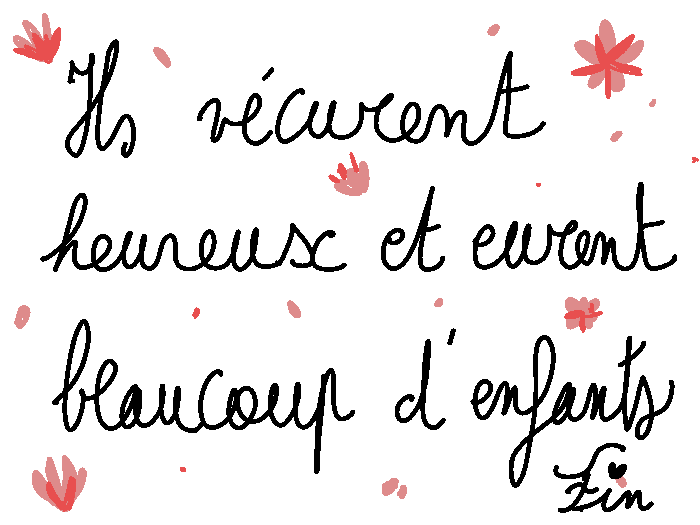 Ils vécurent
heureux et eurent
beaucoup d'enfants
Fin